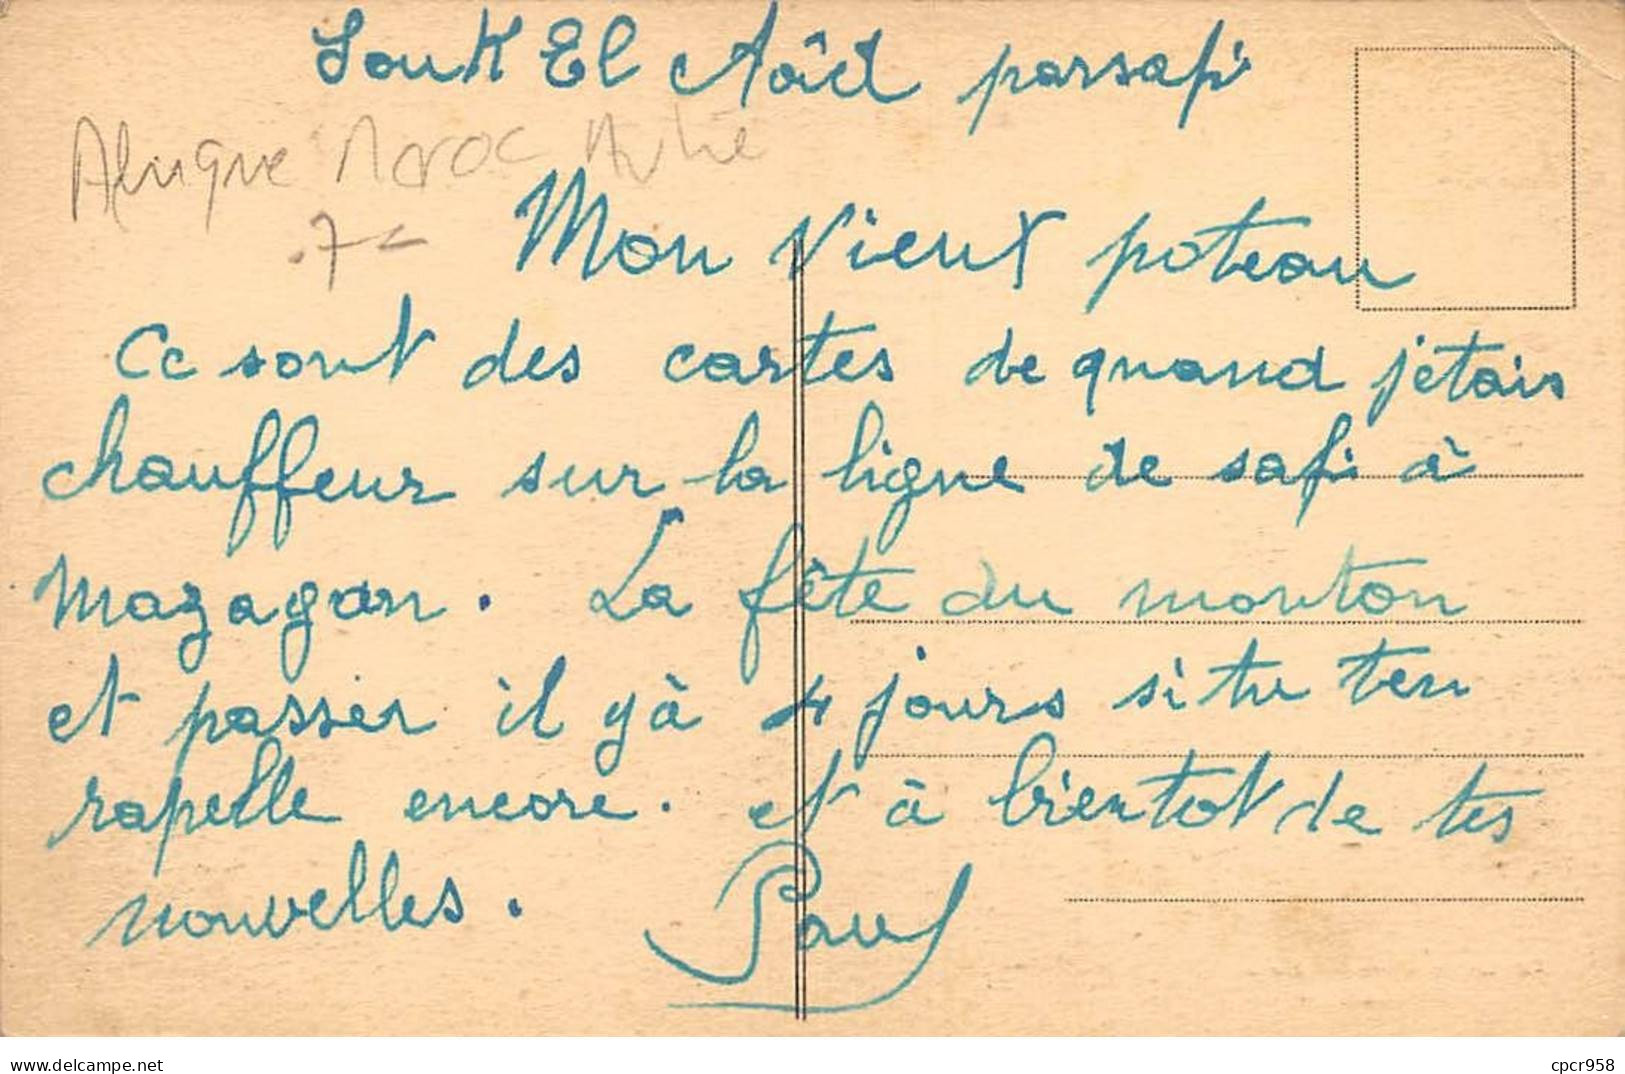 Souk El Aôïd par safi
Afrique Maroc Autre
7-
Mon vieux poteau
Ce sont des cartes de quand j'etais
chauffeur sur la ligne de safi à
mazagan. La fête du mouton
et passer il yà 4 jours si tu ten
rapelle encore. et à bientot de tes
nouvelles. Paul
www.delcampe.net
cpcr958